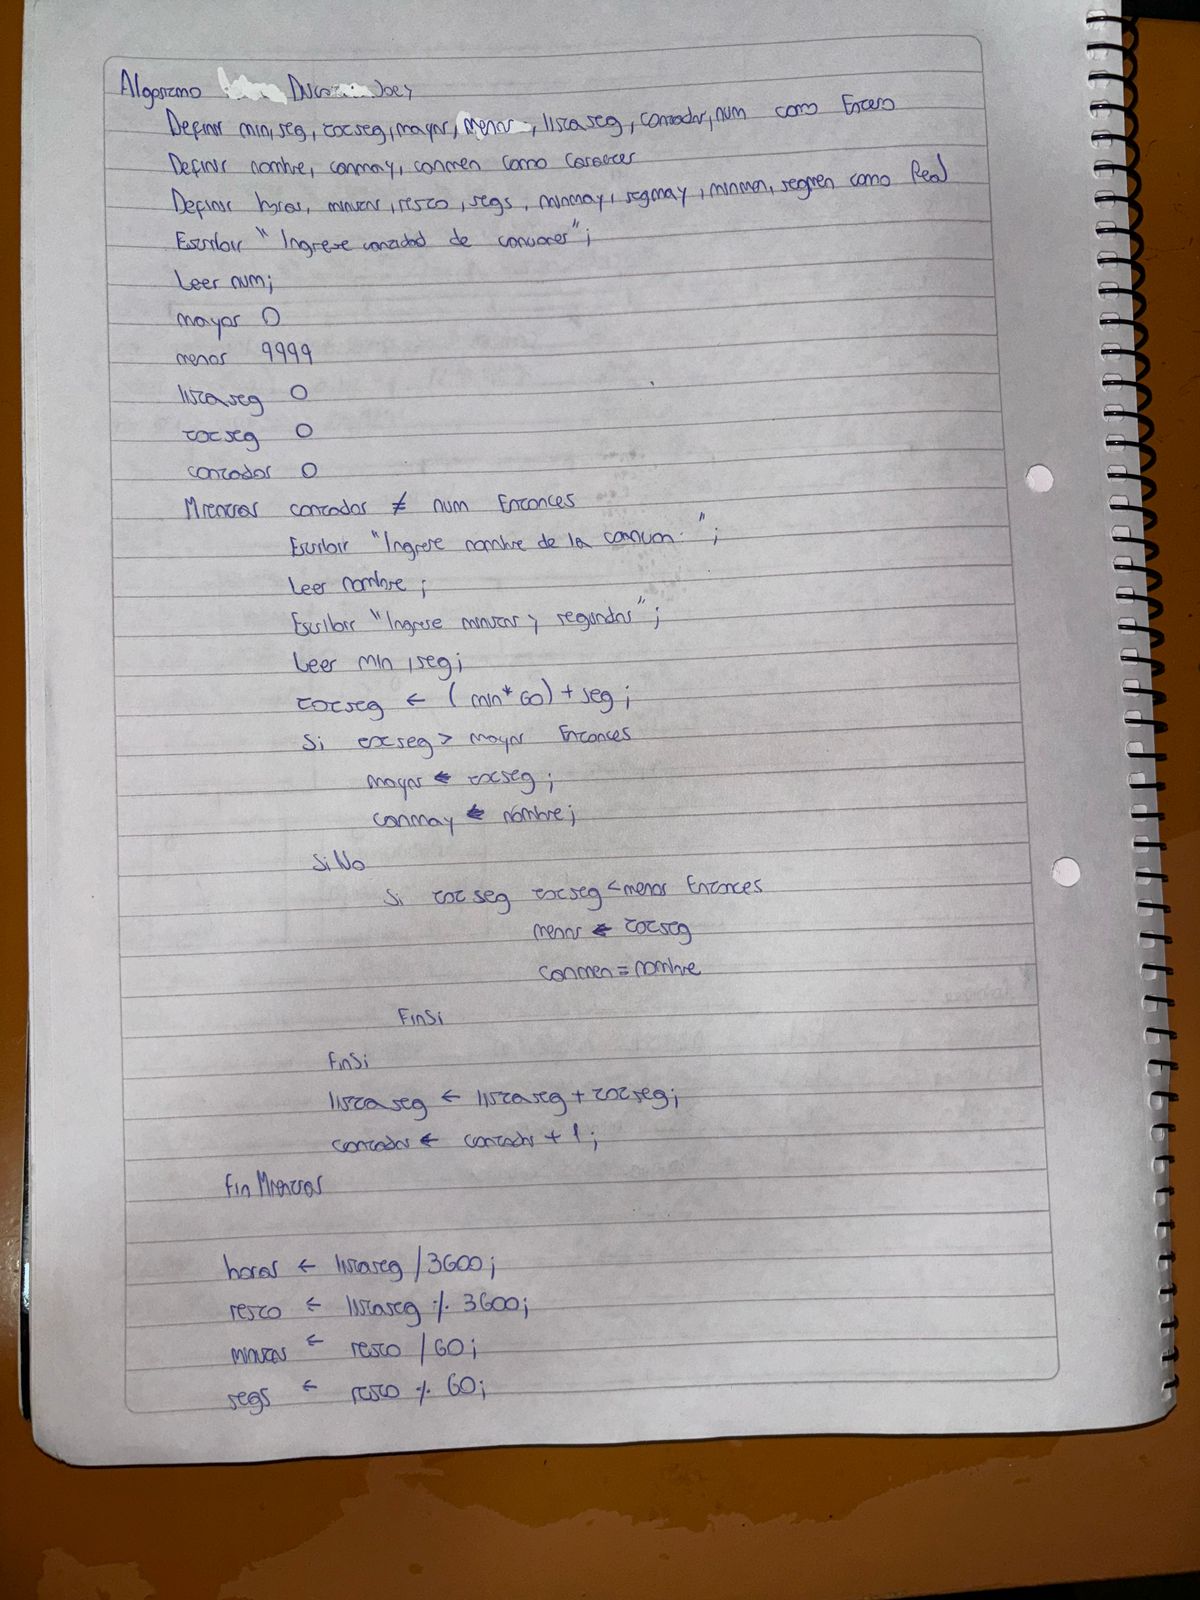 Algoritmo Joey
Definir min, seg, totseg, mayor, menor, listaseg, contador, num como Entero
Definir nombre, canmay, canmen como Caracter
Definir horas, minutos, resto, segs, minmay, segmay, minmen, segmen como Real
Escribir "Ingrese cantidad de canciones";
Leer num;
mayor 0
menor 9999
listaseg 0
totseg 0
contador 0
Mientras contador ≠ num Entonces
Escribir "Ingrese nombre de la cancion: ";
Leer nombre;
Escribir "Ingrese minutos y segundos";
Leer min, seg;
totseg ← (min*60) + seg;
Si totseg > mayor Entonces
mayor ← totseg;
canmay ← nombre;
SiNo
Si totseg totseg < menor Entonces
menor ← totseg
canmen = nombre
FinSi
FinSi
listaseg ← listaseg + totseg;
contador ← contador + 1;
Fin Mientras
horas ← listaseg / 3600;
resto ← listaseg % 3600;
minutos ← resto / 60;
segs ← resto % 60;